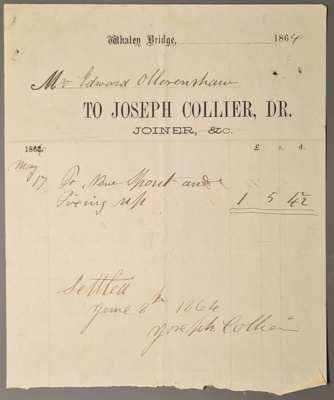 Whaley Bridge, 1864
Mr Edward Ollerenshaw
TO JOSEPH COLLIER, DR.
JOINER, &C.
186 £ s. d.
May
17 To New Spout and
Fixing up 1 5 4½
Settled
June 8th 1864
Joseph Collier